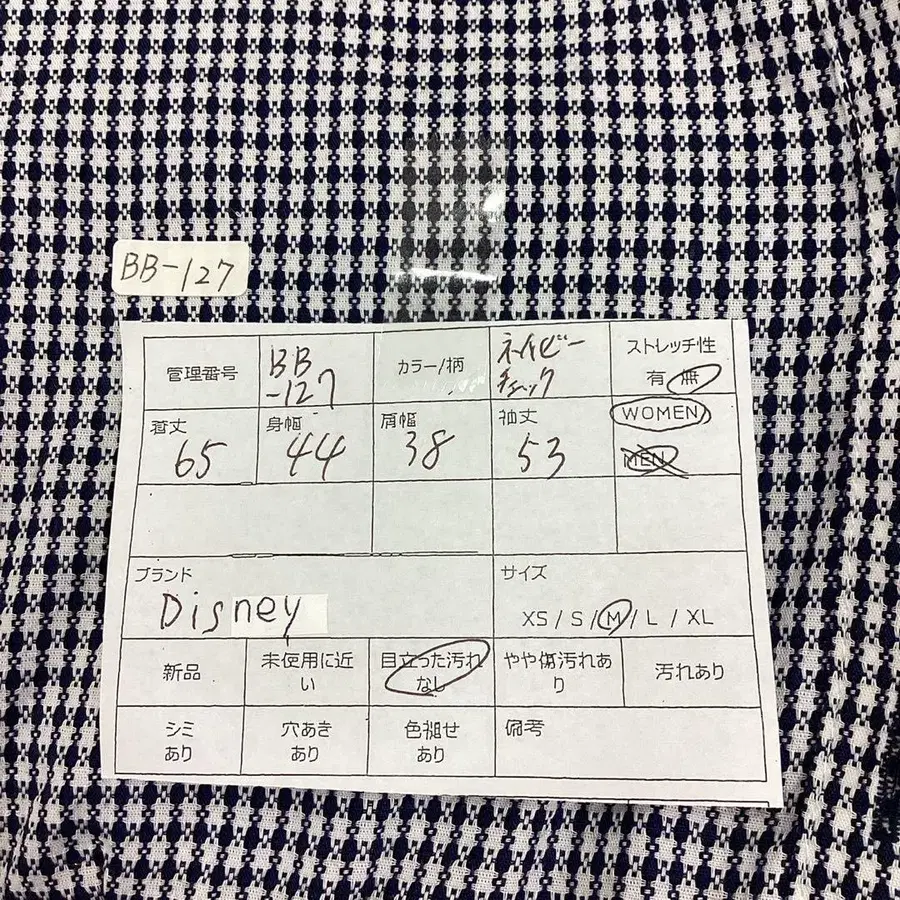 BB-127
管理番号
BB
-127
カラー/柄
ネイビー
チェック
ストレッチ性
有 無
着丈
65
身幅
44
肩幅
38
袖丈
53
WOMEN
MEN
ブランド
Disney
サイズ
XS / S / M / L / XL
新品
未使用に近
い
目立った汚れ
なし
やや傷汚れあ
り
汚れあり
シミ
あり
穴あき
あり
色褪せ
あり
備考